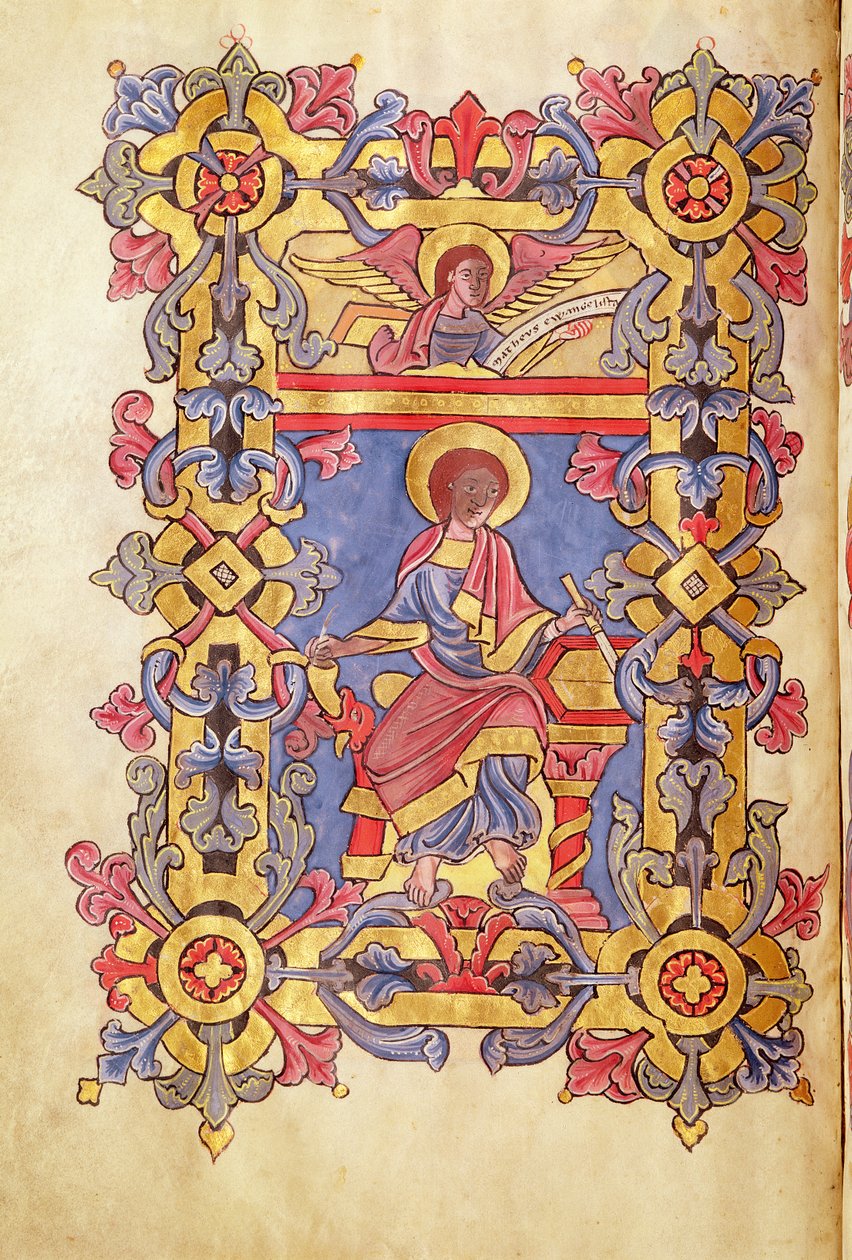 matheus ewangelista